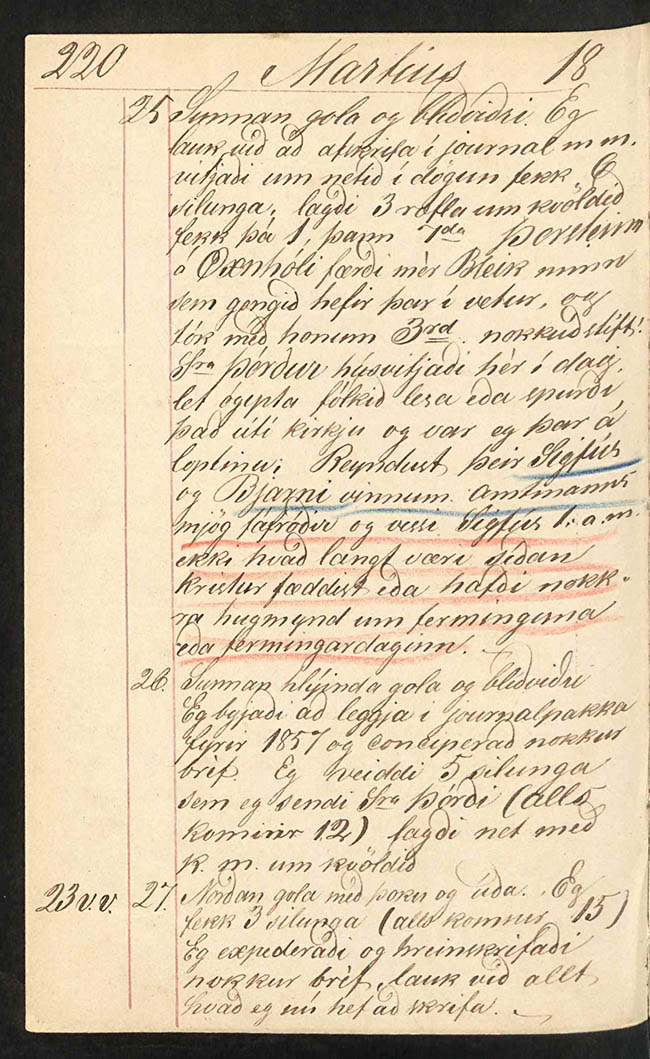 220 Martius 18
25 Sunnan gola og blidvidri. Eg
lauk vid ad afskrifa i journal m m.
vitjadi um netid i dögun fekk 6
silunga, lagdi 3 um kvöldid
fekk þá 1, þann 7da Þorsteinn
á Öxnhóli færdi mér Bleik minn
sem gengid hefir þar í vetur, og
tók med honum 3rd. nokkud stift!
Sra Þórdur húsvitjadi hér í dag,
let ogipta fólkid lesa eda spurdi
það úti kirkju og var eg þar á
loptinu; Reyndust þeir Sigfús
og Bjarni vinnum. amtmanns
mjög fáfródir og vissi Sigfús t: a. m.
ekki hvad langt væri sidan
kristur fæddist eda hafdi nokk-
ra hugmynd um ferminguna
eda fermingardaginn.
26. Sunnan hlýinda gola og blidvidri
Eg byjadi ad leggja i journalpakka
fyrir 1857 og conciperad nokkur
bréf. Eg veiddi 5 silunga
sem eg sendi Sra Þórdi (alls
komnir 12) lagdi net med
k. m. um kvöldid
23 v.v. 27. Nordan gola med þoku og úda. Eg
fekk 3 silunga (alls komnir 15)
Eg expederadi og hreinskrifadi
nokkur bréf, lauk vid allt
hvad eg nú hef ad skrifa.